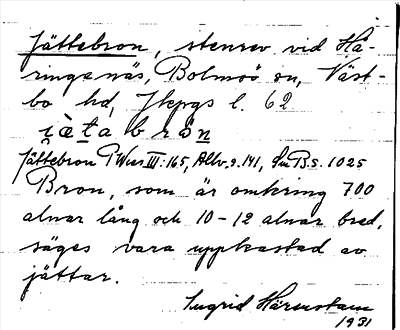 Jättebron, stenrev vid Hå-
ringsnäs, Bolmsö sn, Väst-
bo hd, Jkpgs l. 62
jätabrón
Jättebron PWies III:165, Allv. s. 141, Sm Bs. 1025
Bron, som är omkring 700
alnar lång och 10-12 alnar bred,
säges vara uppkastad av
jättar.
Ingrid Härenstam
1931